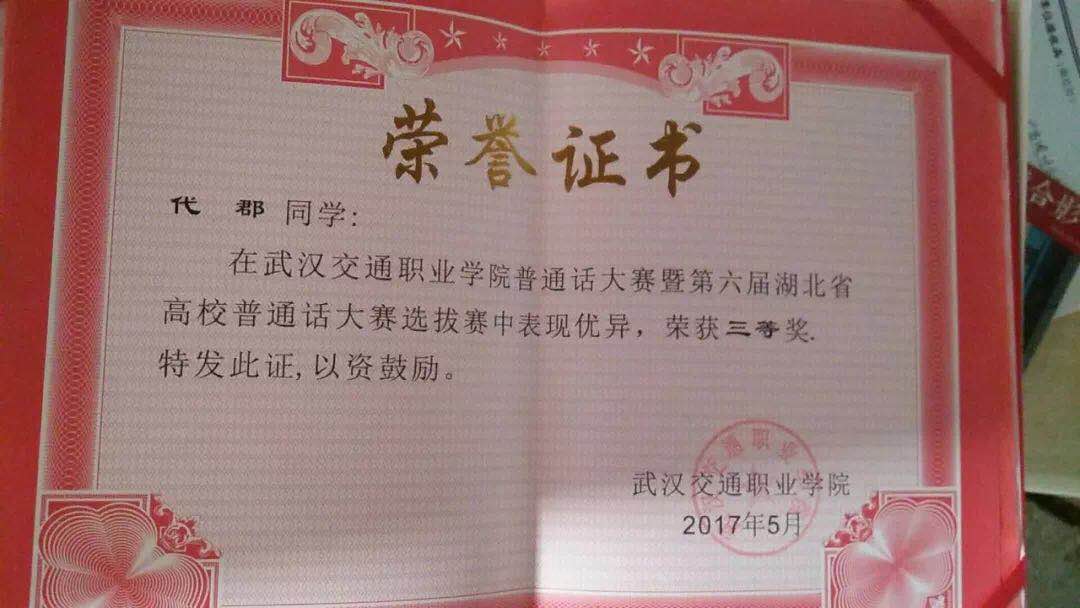 荣誉证书
代 郡 同学:
在武汉交通职业学院普通话大赛暨第六届湖北省
高校普通话大赛选拔赛中表现优异，荣获三等奖.
特发此证,以资鼓励。
武汉交通职业学院
2017年5月
合影